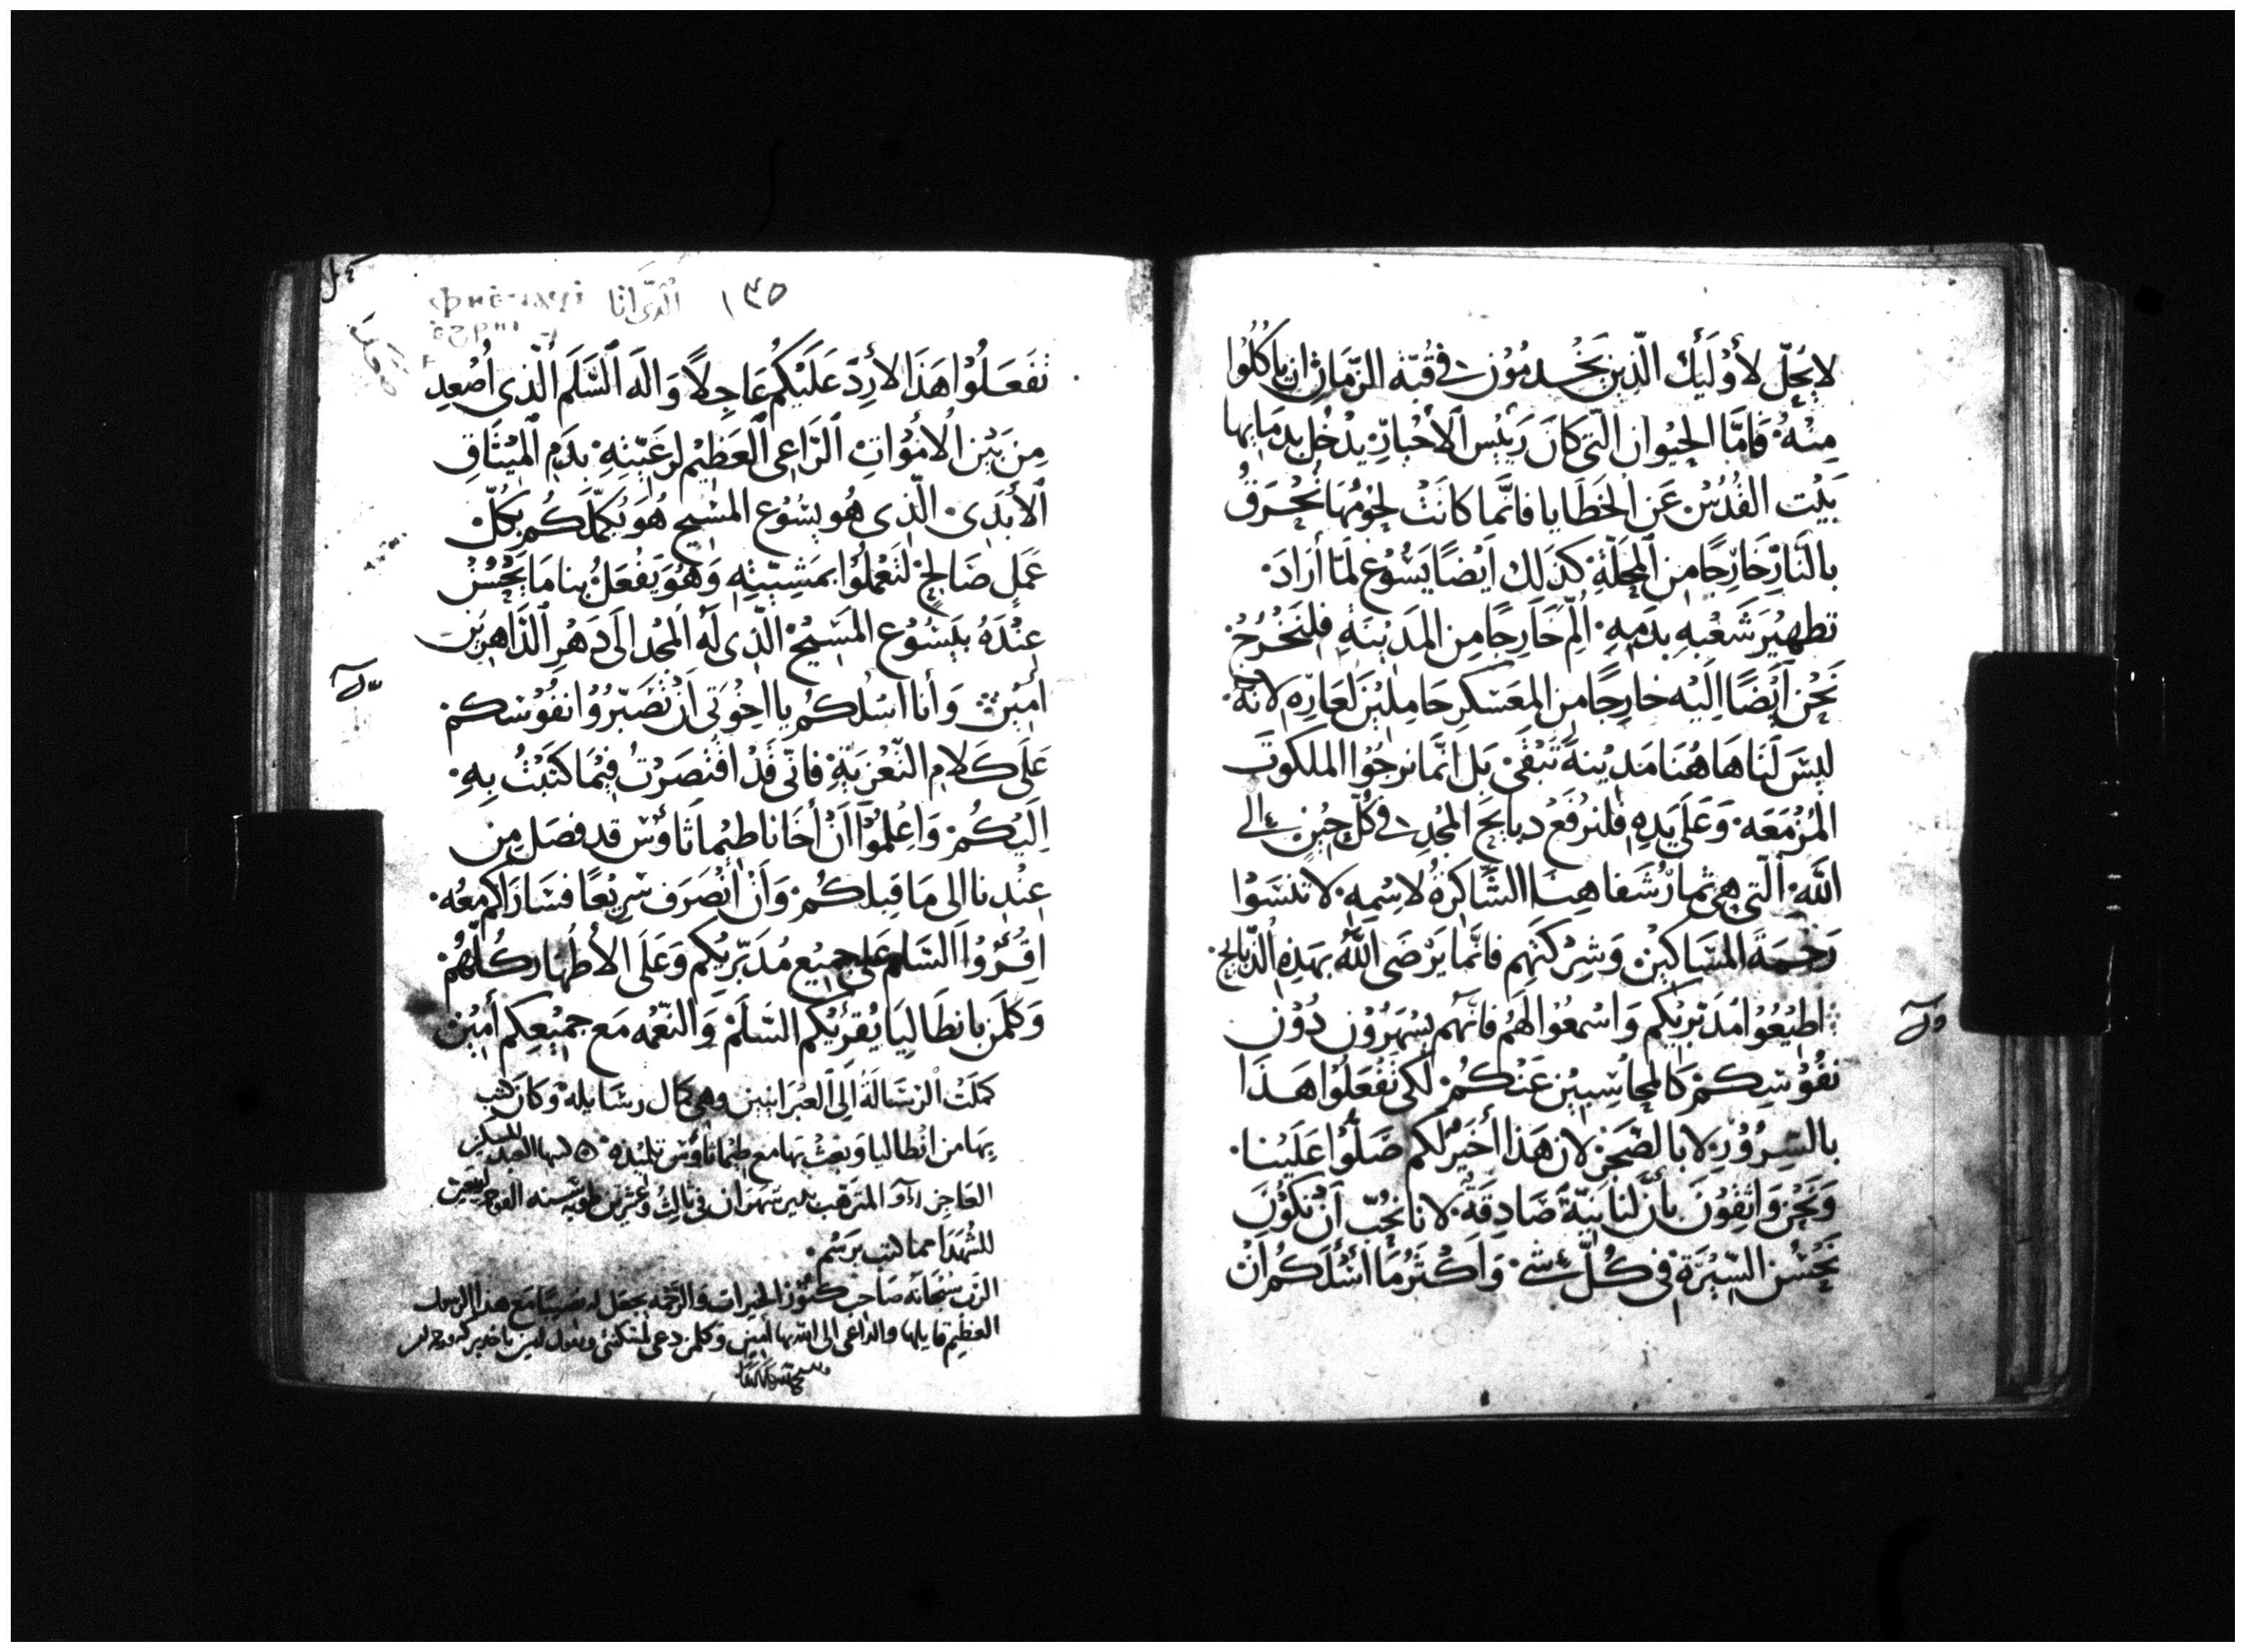 لا يَحِلّ لأُوْلَئِكَ الَّذِينَ يَخْدمُوْن في قُبّة الزّمَان ان يَاكُلُوا
مِنْهُ فَامَّا الحِيْوان التّي كانَ رَيِئس الأحْبارِ يدْخُل بدمَايها
بَيْت القُدْسْ عَن الخَطَايا فانَّما كانَتْ لحوْمُهَا تُحْرَقُ
بالنَّارْ خَارِجًا مِن المِحَلّةِ كذَلك اَيْضًا يَسُوْع لَمّا أرَادَ
تطهِيْرَ شَعْبهِ بدَمِهِ الِمَ خَارِجًا مِن المَدِيْنَةِ فلنَخْرُجْ
نَحْن اَيْضًا اِلَيْه خارجًا من المعَسْكرِ حَامِلِيْن لعَارِهِ لانّهُ
ليْسَ لَنَا هَاهُنا مَدِيْنة تَبْقَى بَل انَّما نرجُوْا الملكوْتَ
المُزْمَعَه وَعَلَى يَدِهِ فلنرْفَعْ دبايحَ المَجْدِ في كُلّ حِيْنٍ الى
اللّه الّتي هي ثمارُ شفاهِنا الشّاكرَةُ لاسْمِهِ لا تنْسَوْا
رَحمَةَ المسَاكِيْن وَشِرْكتَهِم فانَّما يَرْضَى اللّهُ بهَذِهِ الذّبايح
اطِيْعُوْا مُدَبّرِيْكم وَاسْمعُوْا لَهُم فانّهم يسْهَرُوْن دُوْن
نفُوْسِكمْ كالمحَاسِبيْن عَنْكُمْ لكي تَفْعَلُوا هَذا
بالسِرُوْرِ لا بالضّجَرْ لان هَذا أخَيْرُ لكم صَلّوا عَلَيْنا
وَنَحْن وَاثِقُوْن بأنّ لنا نِيّةً صَادِقةً لانا نُحِبّ اَنْ نكُوْن
نَحُسْن السِّيْرَةْ في كُلّ شيْ وَاكثرُ مَا اسْئلكُم ان
١٣٥ الَّدَى أنا
تَفْعَلُوْا هَذَا لأرِدّ عَلَيْكُم عَاجِلاً وَالَه السَّلَم الّذى أُصْعِد
مِن بَيْن الأمْوَاتِ الرَّاعِي العَظِيْم لرعِيّتِهِ بدَمِ المِيْثَاقِ
الأبَدِي الّذِي هُو يسُوْع المسِيح هُوَ يُكمّلكُم بكُلّ
عَملٍ صَالحٍ لتَعْملُوْا بمَشِيّتِهِ وَهُوَ يَفْعَلُ بنا مَا يَحْسُنْ
عِنْدَهُ بيَسُوْع المَسِيْح الّذِي لَهُ المَجْد الَى دَهْرِ الدَّاهِرِين
امِيْن وَأنا اسْلكُم يا اخِوْتي اَنْ تُصَبّرُوْا نفُوْسكمْ
عَلَى كَلامِ التّعْزِيَةِ فانّي قَدْ اقْتصَرْتُ فِيْمَا كتَبْتُ بِهِ
اِلَيْكُمْ وَاعْلمُوْا اَنّ أخَانا طيْماثاوُسْ قد فصَل مِن
عِنْدِنا الى مَا قِبلكُمْ وَاَنْ انْصَرَف سَرِيْعًا فسَارَاكم معُه
اقْرُوا السَّلم عَلى جِميْع مُدَبّرِيْكم وَعَلَى الأطهَارِ كُلّهُمْ
وَكلمَن بانطَاليَا يُقرِئِكم السّلَمْ وَالنّعْمه مَع جِميْعِكم أمِيْن
كمَلتْ الرسَالَةُ الَى العِبْرَانيين وَهي كمَال رسَايله وَكانَ كتب
بِهَا من انطاليا وَبعَثْ بَها مع طيْماثاوُس تلميْذه كتبها العبد المسكين
العَاجِز المترَهّب بدير شهران في ثالث وَعشرين طوبه سنه الف
للشهَدَا مما كتب برَسْم
الرّبّ سُبْحَانَه صَاحِب كنُوْز الخيرات وَالرّحْمه يجعَل له نصيبًا مَع هذا الرسول
العظِيْم قايلها والدَاعي الى اللّه بها أمِيْن وَكلمن دعى لمسكنتي وَيقول امين ياخد